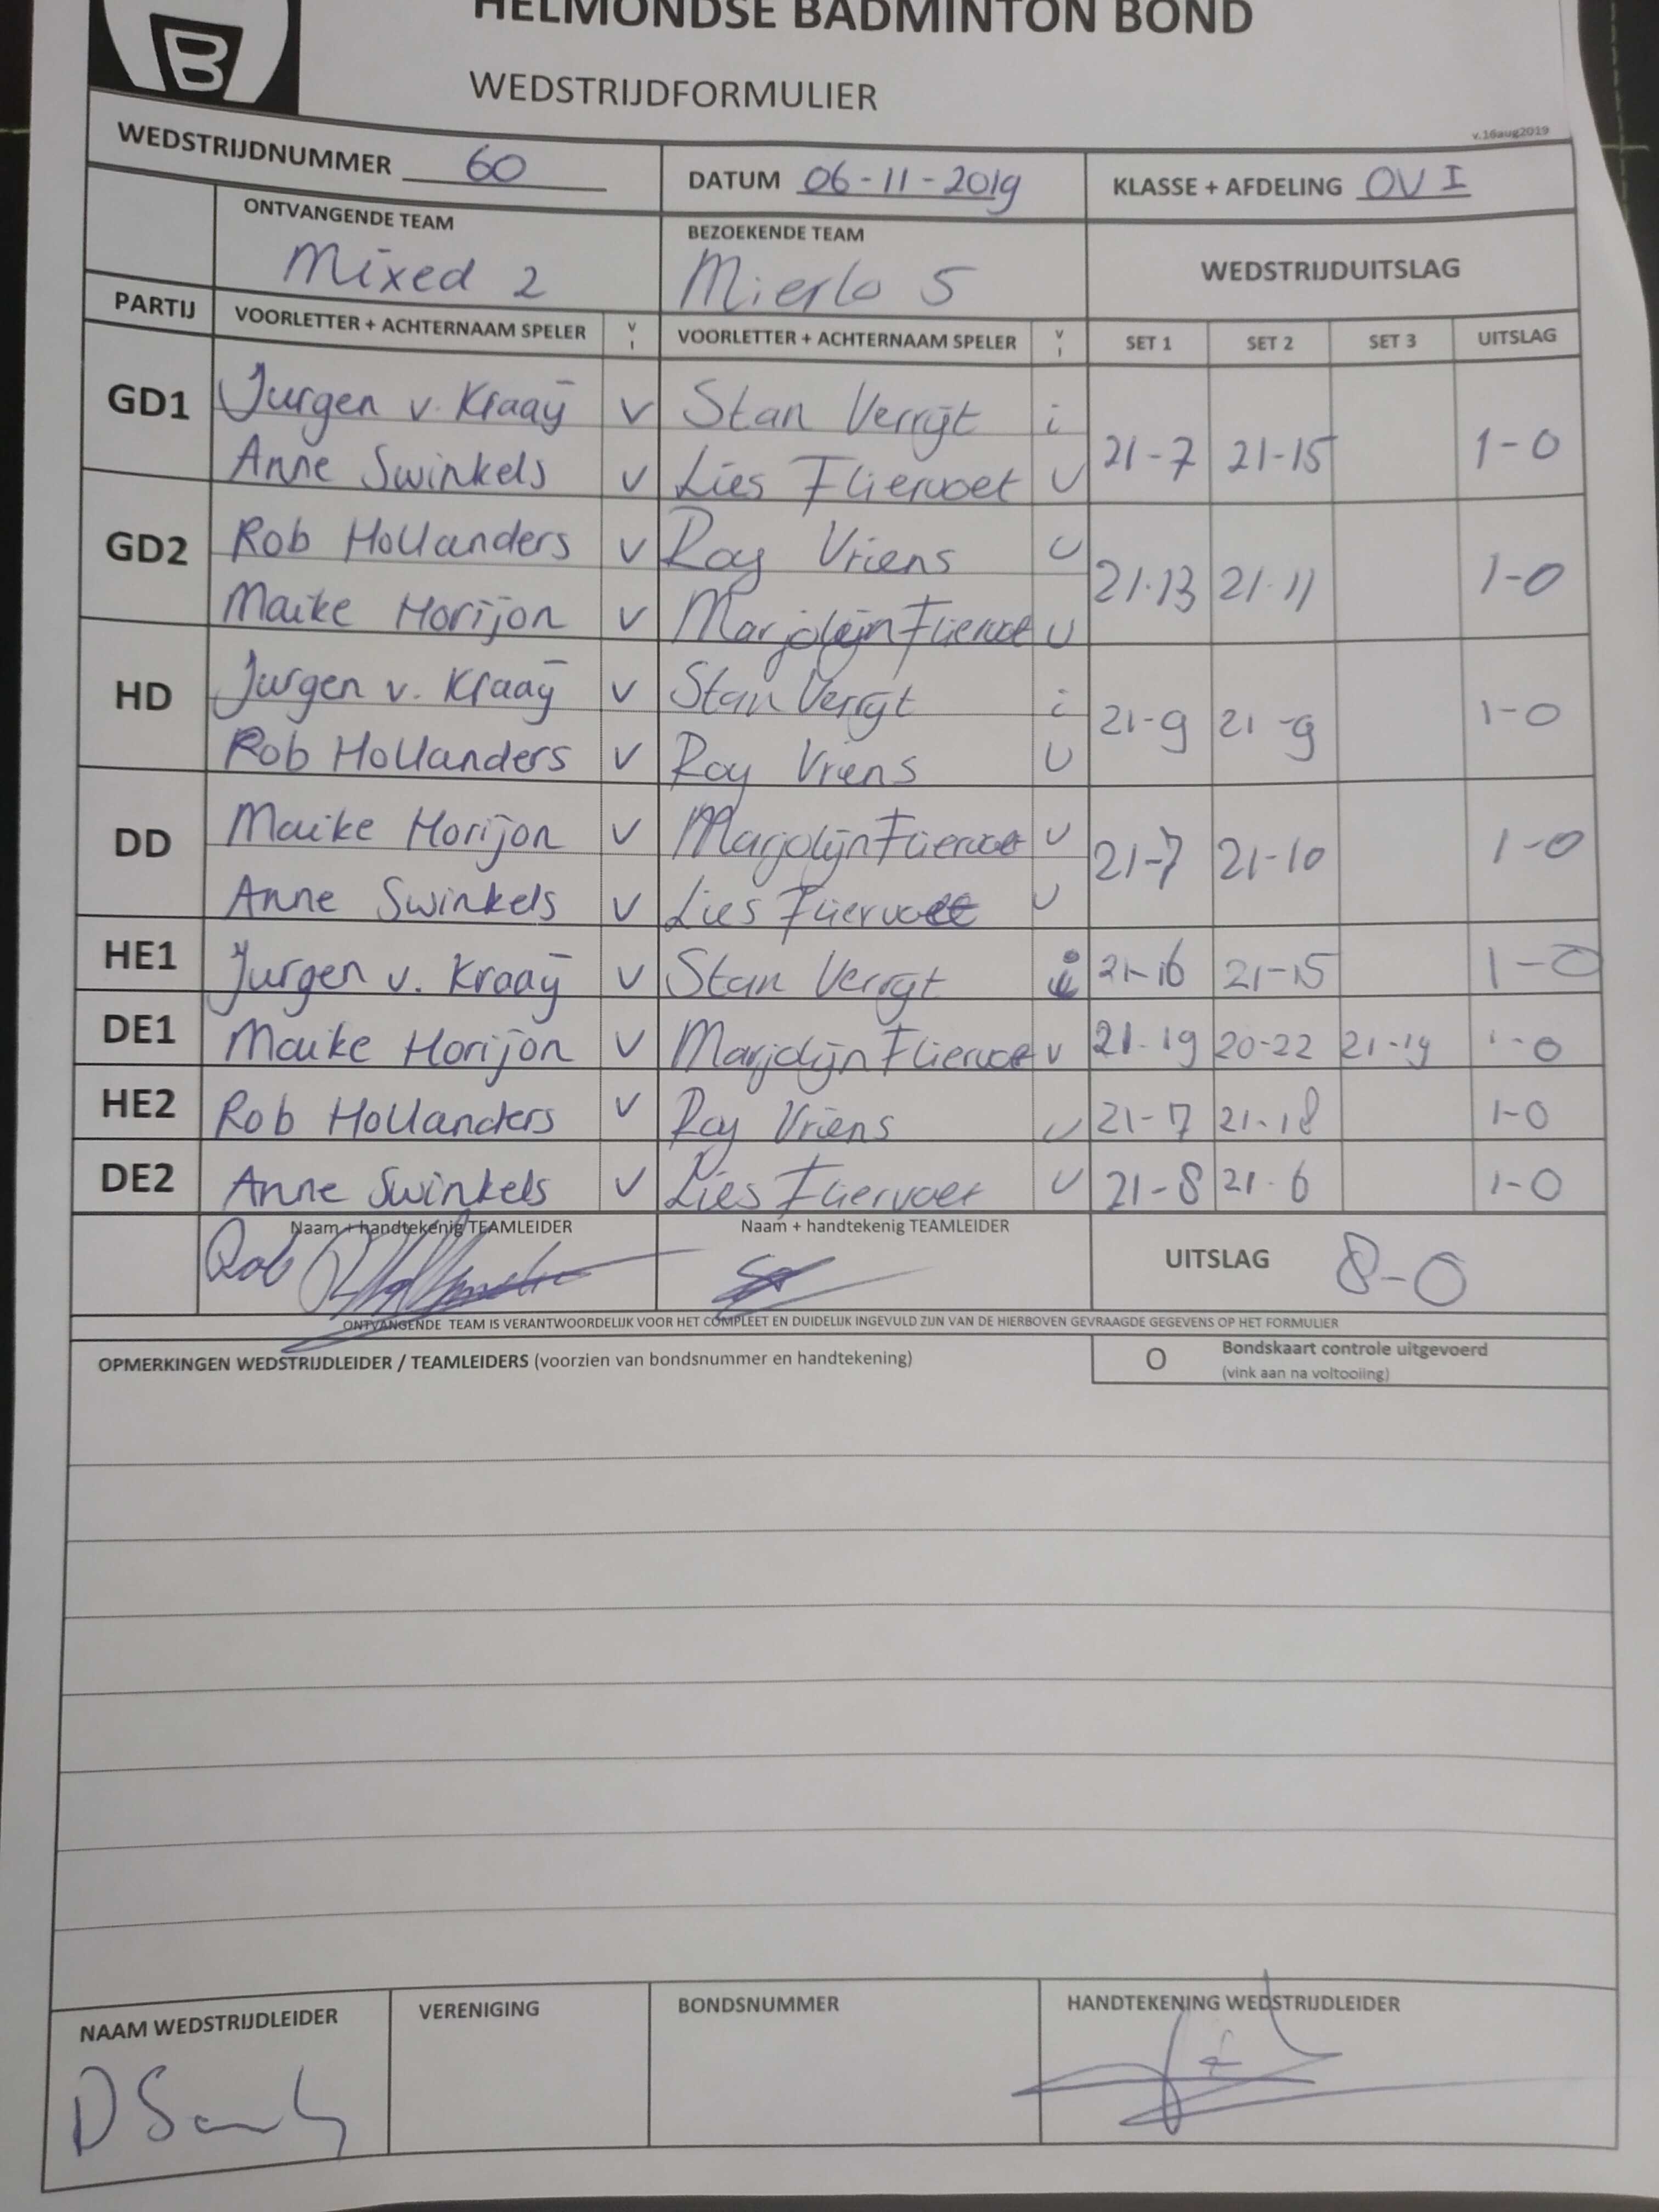 HELMONDSE BADMINTON BOND
B
WEDSTRIJDFORMULIER
v.16aug2019
WEDSTRIJDNUMMER 60
DATUM 06-11-2019
KLASSE + AFDELING OV I
ONTVANGENDE TEAM
Mixed 2
BEZOEKENDE TEAM
Mierlo 5
WEDSTRIJDUITSLAG
PARTIJ VOORLETTER + ACHTERNAAM SPELER V I VOORLETTER + ACHTERNAAM SPELER V I SET 1 SET 2 SET 3 UITSLAG
GD1 Jurgen v. Kraaij v Stan Verrijt i 21-7 21-15 1-0
Anne Swinkels v Lies Fliervoet v
GD2 Rob Hollanders v Roy Vriens v 21-13 21-11 1-0
Maike Horijon v Marjolijn Fliervoet v
HD Jurgen v. Kraaij v Stan Verrijt i 21-9 21-9 1-0
Rob Hollanders v Roy Vriens v
DD Maike Horijon v Marjolijn Fliervoet v 21-7 21-10 1-0
Anne Swinkels v Lies Fliervoet v
HE1 Jurgen v. Kraaij v Stan Verrijt i 21-16 21-15 1-0
DE1 Maike Horijon v Marjolijn Fliervoet v 21-19 20-22 21-19 1-0
HE2 Rob Hollanders v Roy Vriens v 21-7 21-18 1-0
DE2 Anne Swinkels v Lies Fliervoet v 21-8 21-6 1-0
Naam + handtekenig TEAMLEIDER
Rob
Naam + handtekenig TEAMLEIDER
UITSLAG 8-0
ONTVANGENDE TEAM IS VERANTWOORDELIJK VOOR HET COMPLEET EN DUIDELIJK INGEVULD ZIJN VAN DE HIERBOVEN GEVRAAGDE GEGEVENS OP HET FORMULIER
OPMERKINGEN WEDSTRIJDLEIDER / TEAMLEIDERS (voorzien van bondsnummer en handtekening)
O Bondskaart controle uitgevoerd
(vink aan na voltooiing)
NAAM WEDSTRIJDLEIDER
VERENIGING
BONDSNUMMER
HANDTEKENING WEDSTRIJDLEIDER